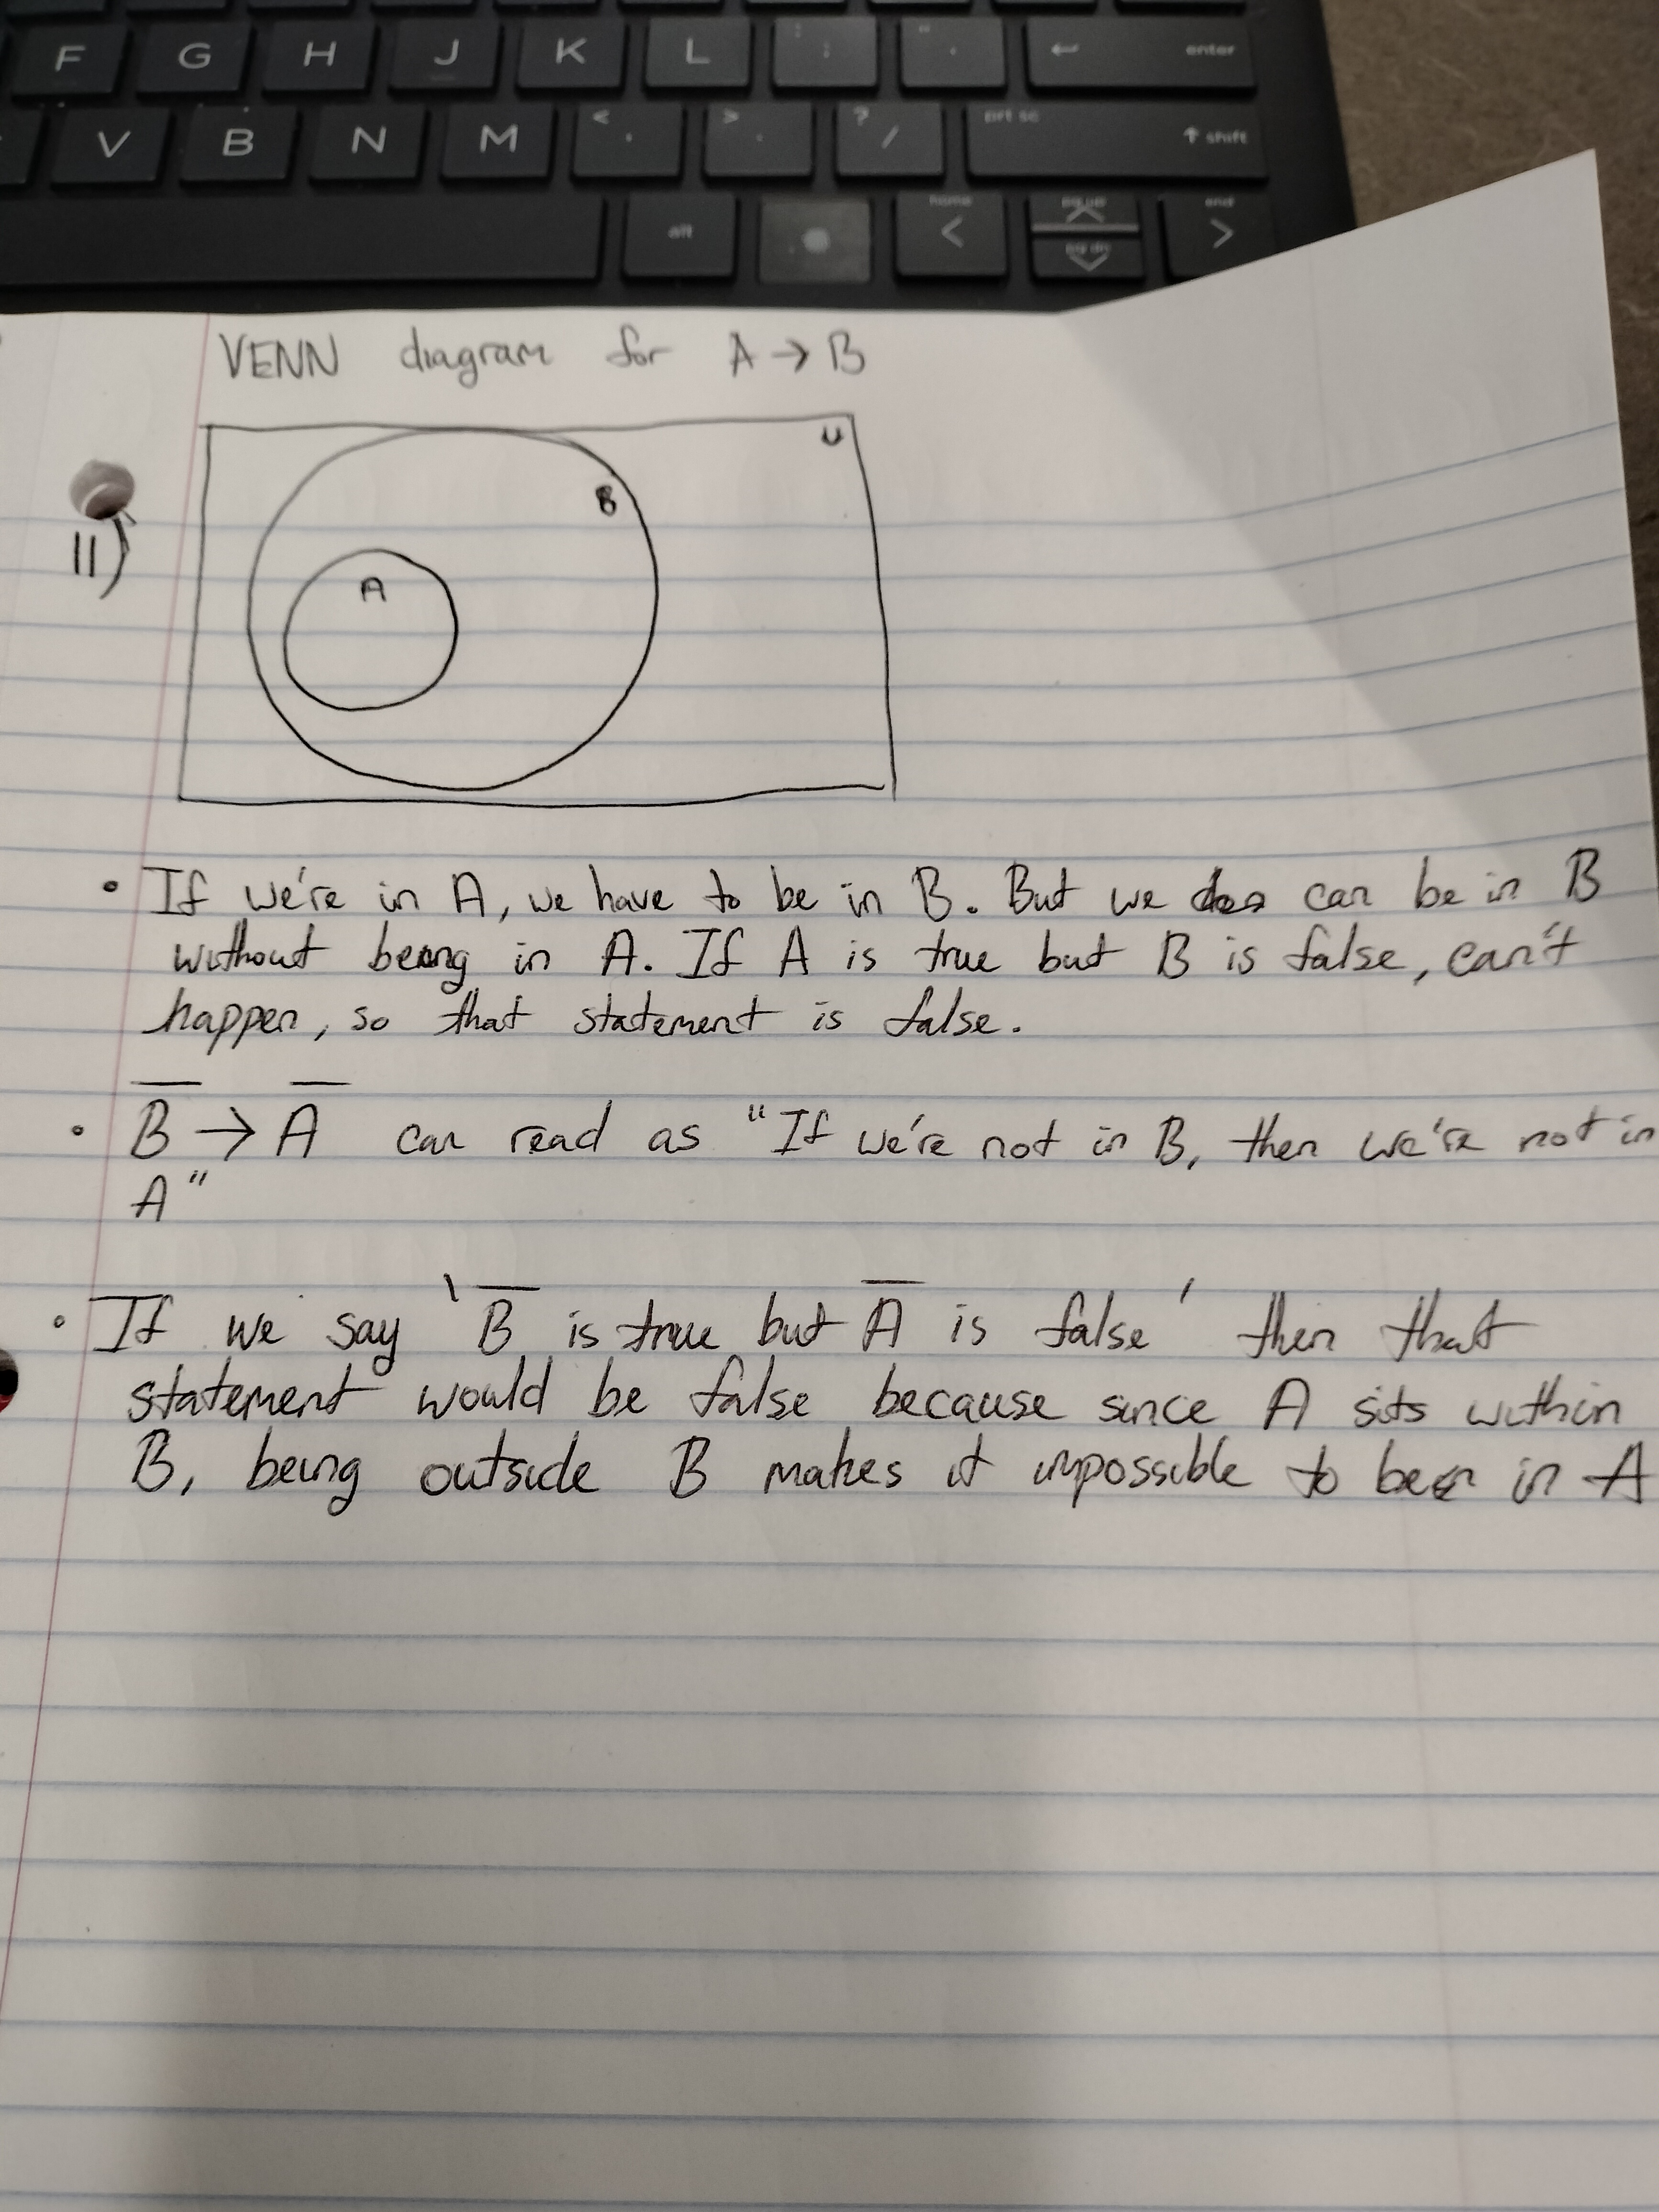 F G H J K L : ; " ' enter
V B N M < , > . ? / prt sc shift
alt home < pg up pg dn end >
VENN diagram for A → B
U
B
A
11)
• If we're in A, we have to be in B. But we can be in B
without being in A. If A is true but B is false, can't
happen, so that statement is false.
• B̅ → A̅ can read as "If we're not in B, then we're not in
A"
• If we say 'B̅ is true but A̅ is false' then that
statement would be false because since A sits within
B, being outside B makes it impossible to be in A